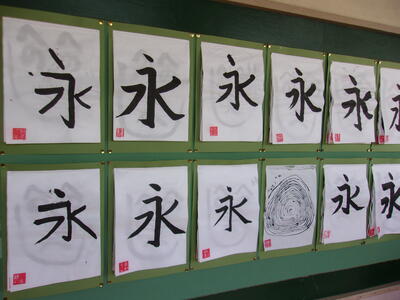 永 永 永 永 永 永 永
永 永 永 永 永